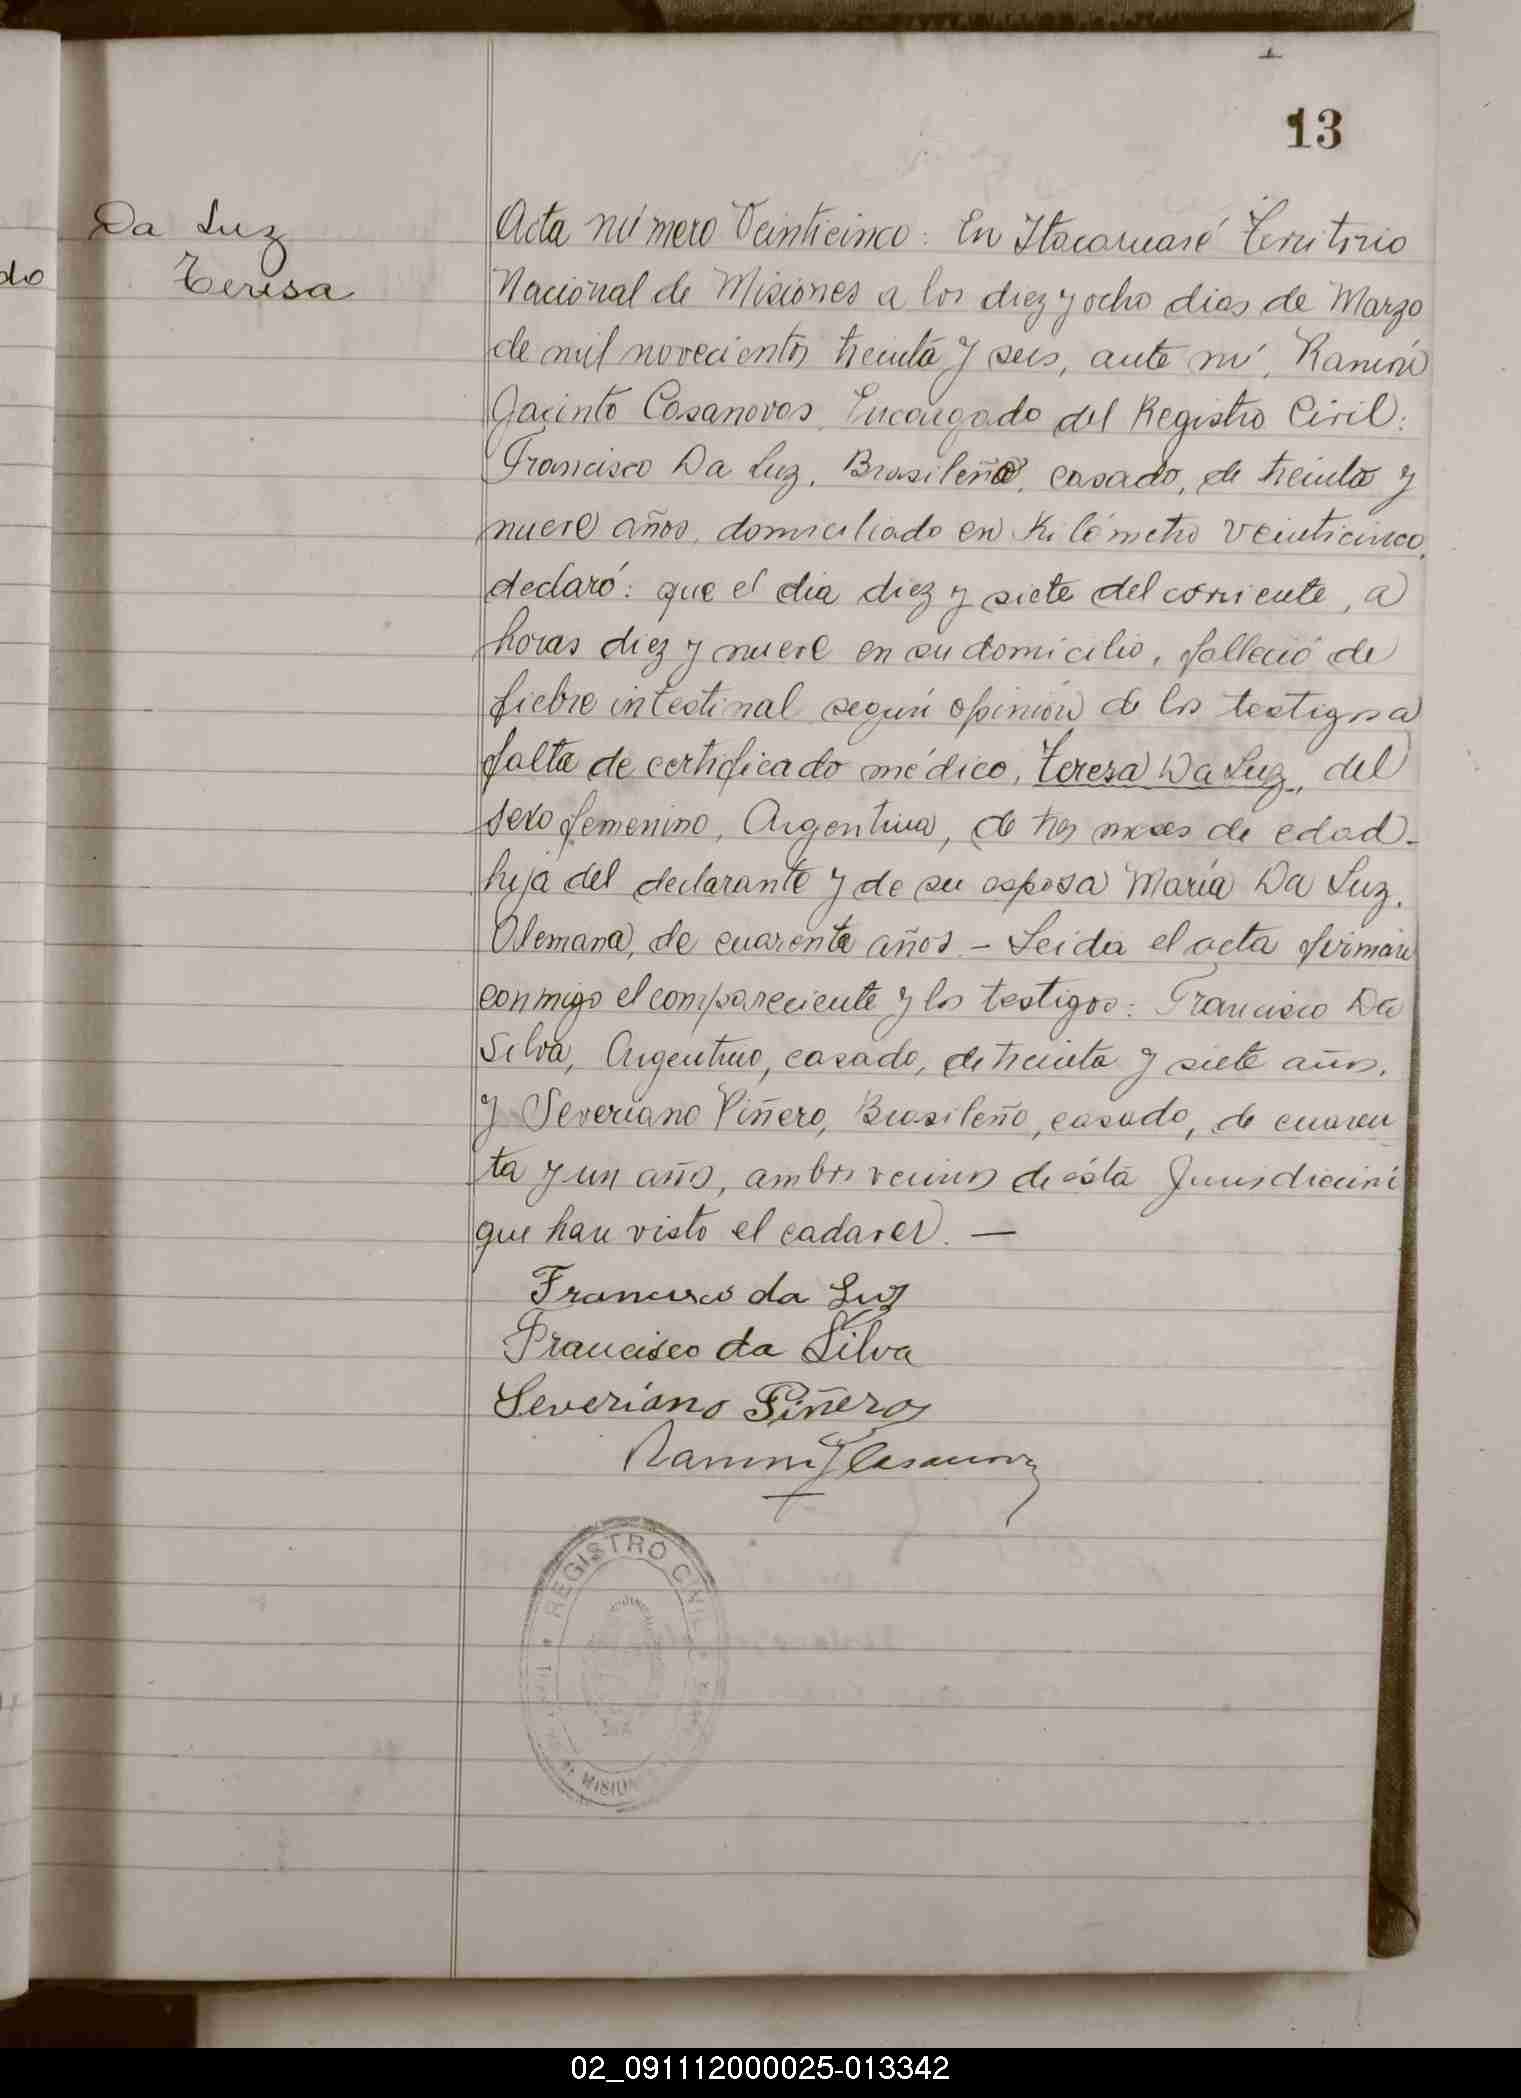 13
Da Luz
Teresa
do
Acta número Veinticinco: En Itacaruaré Territorio
Nacional de Misiones a los diez y ocho dias de Marzo
de mil novecientos treinta y seis, ante mí, Ramón
Jacinto Casanovas, Encargado del Registro Civil:
Francisco Da Luz, Brasileño, casado, de treinta y
nueve años, domiciliado en Kilómetro veinticinco,
declaró: que el dia diez y siete del corriente, a
horas diez y nueve en su domicilio, falleció de
fiebre intestinal según opinión de los testigos a
falta de certificado médico, Teresa Da Luz, del
sexo femenino, Argentina, de tres meses de edad-
hija del declarante y de su esposa María Da Luz,
Alemana, de cuarenta años. - Leida el acta firman
conmigo el compareciente y los testigos: Francisco Da
Silva, Argentino, casado, de treinta y siete años,
y Severiano Piñero, Brasileño, casado, de cuaren
ta y un año, ambos vecinos de ésta Jurisdicción
que han visto el cadaver. —
Francisco da Luz
Francisco da Silva
Severiano Piñero
Ramón J Casanovas
REGISTRO CIVIL
MISIONES
02_091112000025-013342